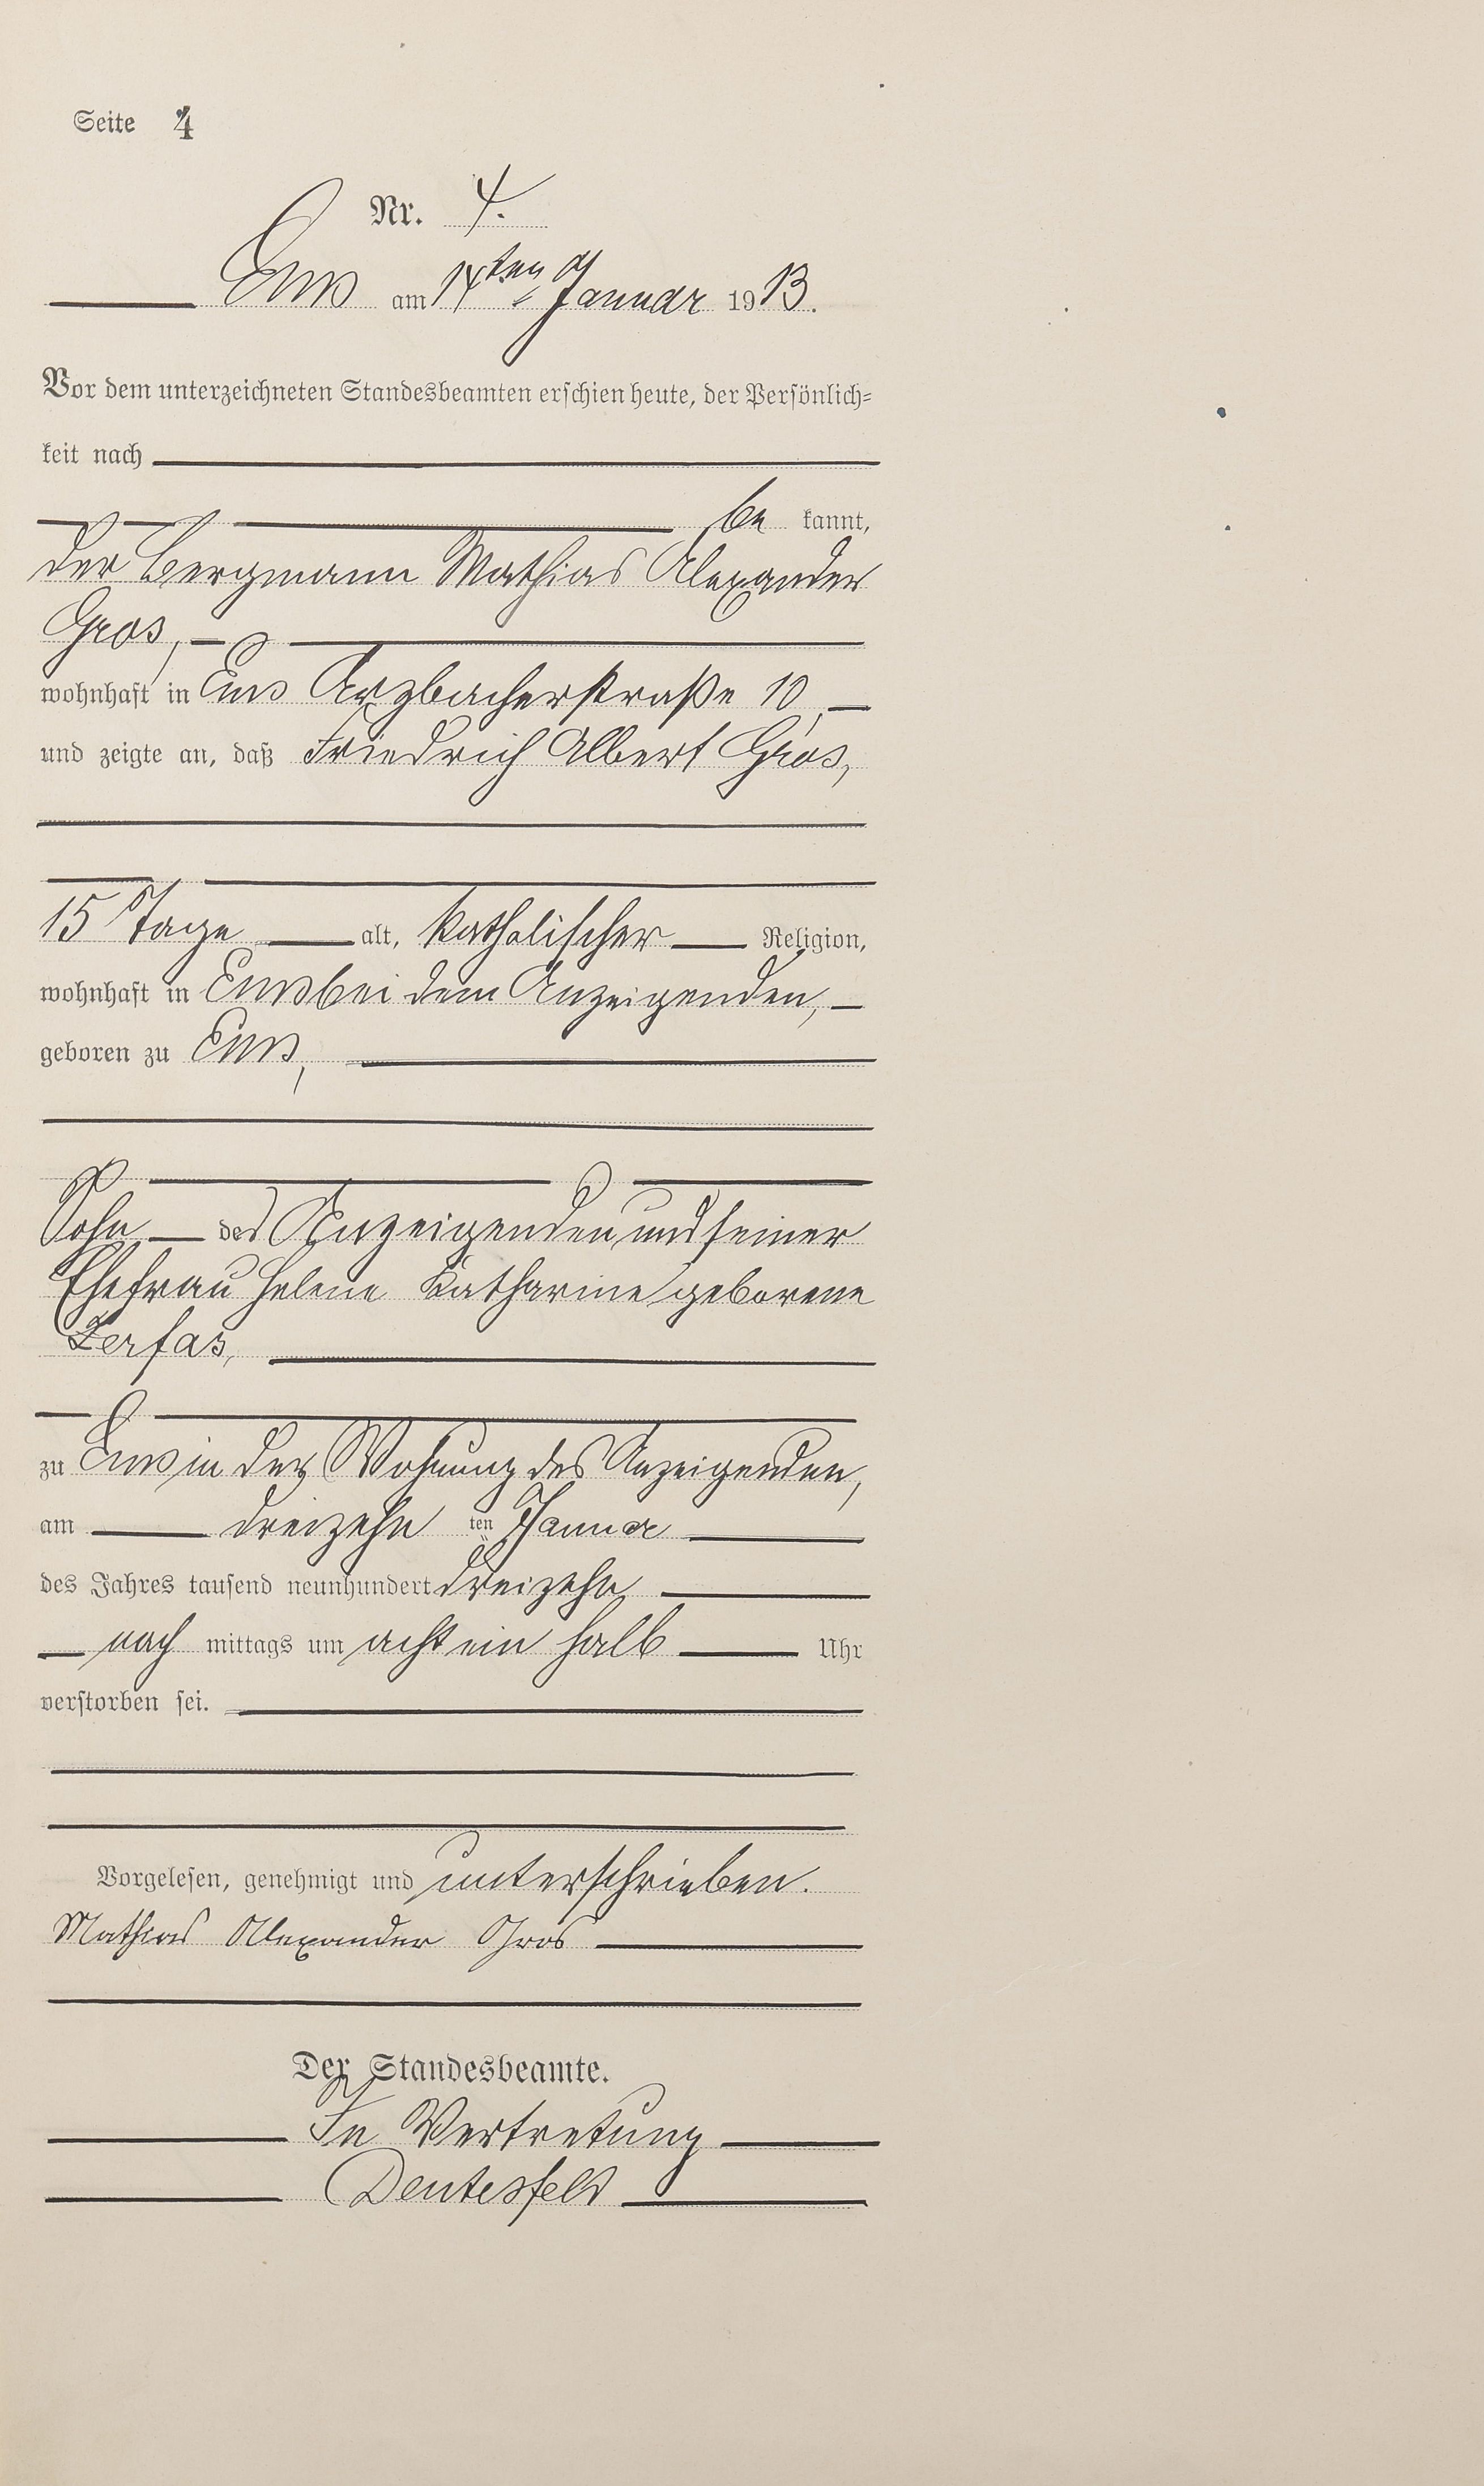 Seite 4
Nr. 4.
Ems am 14ten Januar 1913.
Vor dem unterzeichneten Standesbeamten erschien heute, der Persönlich-
keit nach
be kannt,
der Bergmann Mathias Alexander
Gros,
wohnhaft in Ems Arzbacherstraße 10,
und zeigte an, daß Friedrich Albert Gros,
15 Tage alt, katholischer Religion,
wohnhaft in Ems bei dem Anzeigenden,
geboren zu Ems,
Sohn des Anzeigenden und seiner
Ehefrau Helene Katharine geborene
Zerfas,
zu Ems in der Wohnung des Anzeigenden,
am dreizehn ten Januar
des Jahres tausend neunhundert dreizehn
nach mittags um acht ein halb Uhr
verstorben sei.
Vorgelesen, genehmigt und unterschrieben.
Mathias Alexander Gros
Der Standesbeamte.
In Vertretung
Deutesfeld